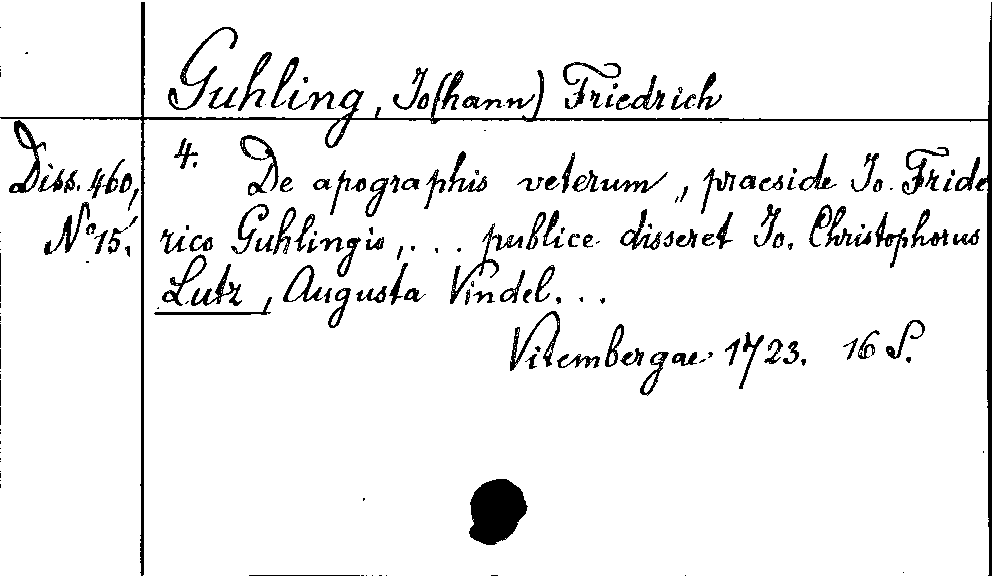 Guhling, Jo(hann) Friedrich
Diss. 460,
No 15.
4. De apographis veterum, praeside Jo. Fride
rico Guhlingio, ... publice disseret Jo. Christophorus
Lutz, Augusta Vindel...
Vitembergae 1723. 16 S.